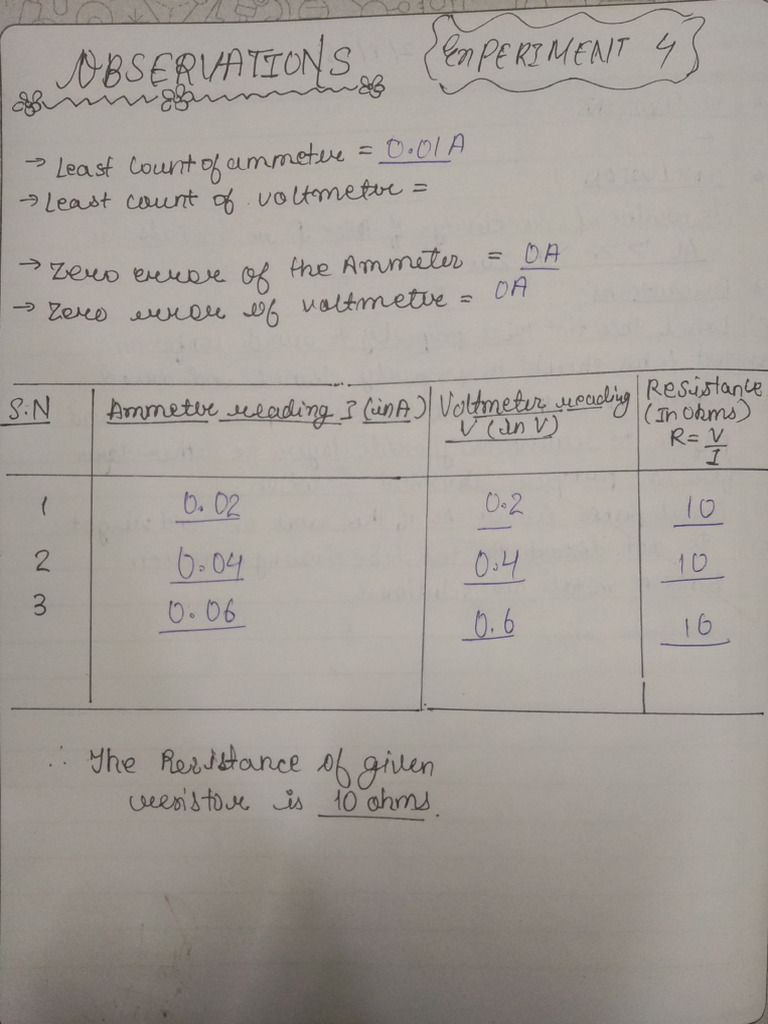 OBSERVATIONS
EXPERIMENT 4
→ Least count of ammeter = 0.01A
→ Least count of voltmeter =
→ Zero error of the Ammeter = 0A
→ Zero error of voltmeter = 0A
S.N Ammeter reading I (in A) Voltmeter reading V (In V) Resistance (In ohms) R = V/I
1 0.02 0.2 10
2 0.04 0.4 10
3 0.06 0.6 10
∴ The Resistance of given
resistor is 10 ohms.